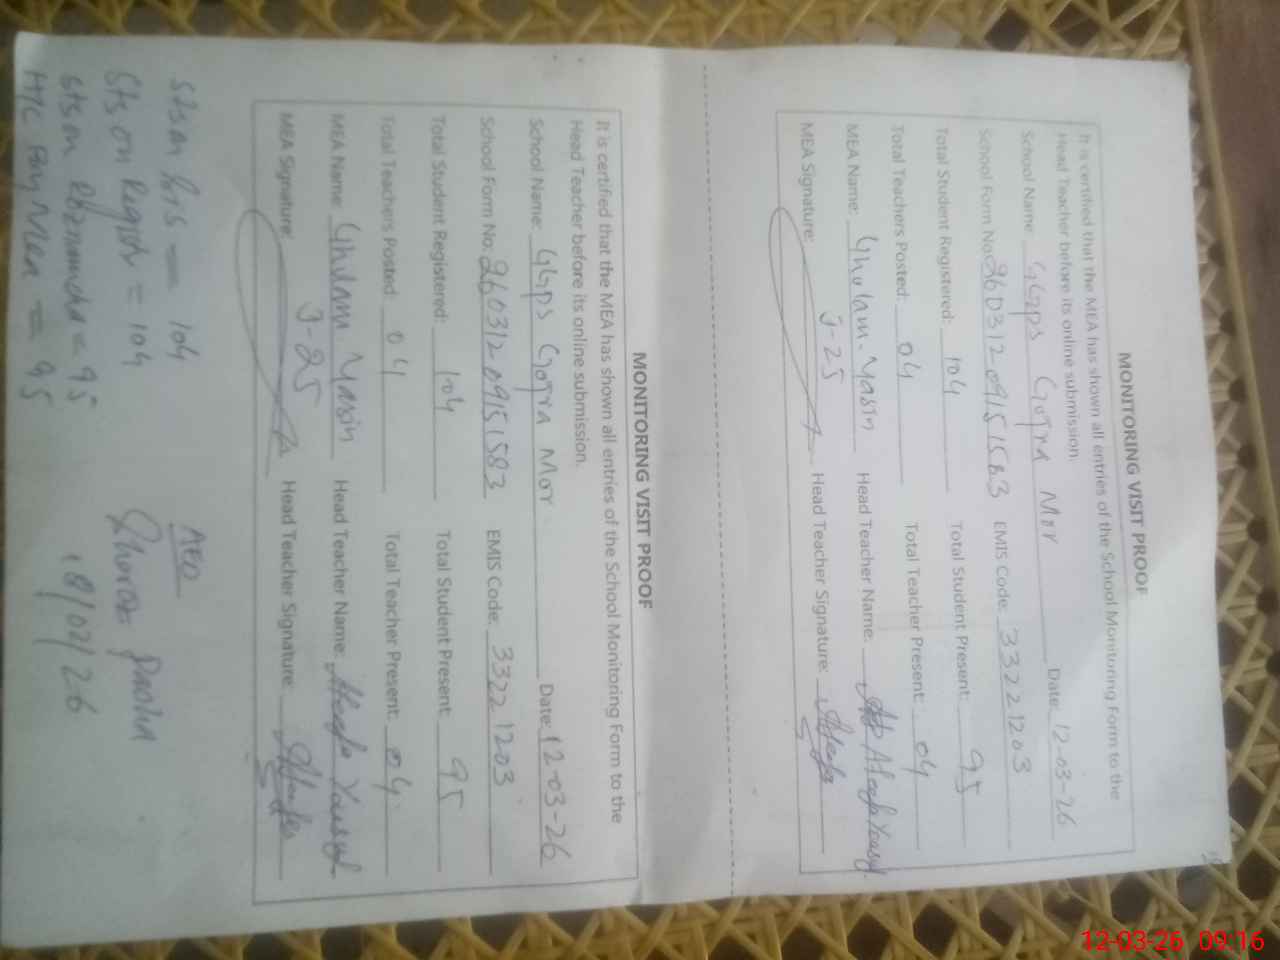 MONITORING VISIT PROOF
It is certified that the MEA has shown all entries of the School Monitoring Form to the
Head Teacher before its online submission.
School Name: GGPS Gojra Mor Date: 12-03-26
School Form No. 26031209151583 EMIS Code: 33221203
Total Student Registered: 104 Total Student Present: 95
Total Teachers Posted: 04 Total Teacher Present: 04
MEA Name: Ghulam Yasin Head Teacher Name: Yousaf
MEA Signature: J-25 Head Teacher Signature:
MONITORING VISIT PROOF
It is certified that the MEA has shown all entries of the School Monitoring Form to the
Head Teacher before its online submission.
School Name: GGPS Gojra Mor Date: 12-03-26
School Form No: 26031209151583 EMIS Code: 33221203
Total Student Registered: 104 Total Student Present: 95
Total Teachers Posted 04 Total Teacher Present: 04
MEA Name: Ghulam Yasin Head Teacher Name: Yousaf
MEA Signature: J-25 Head Teacher Signature:
Sts on = 104
Sts on Register = 104
Sts on = 95
H/C by MEA = 95
AEO
Pasha
18/02/26
12-03-26 09:16